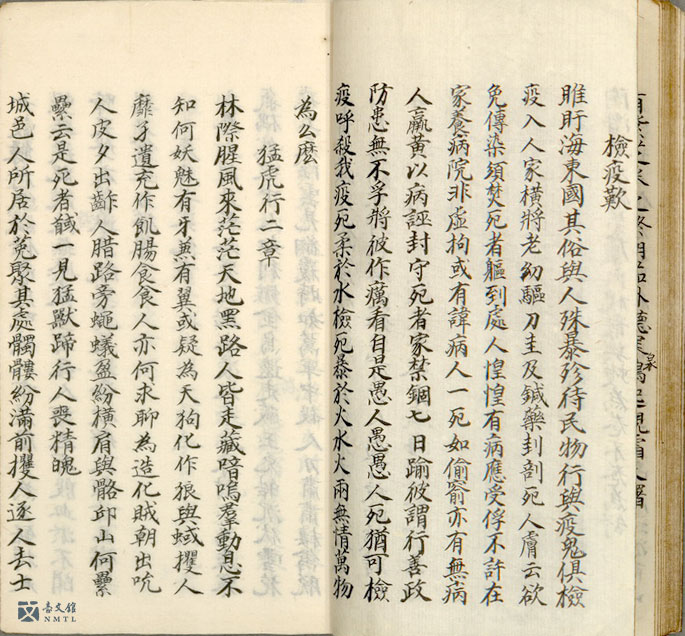 檢疫歎
睢盱海東國其俗與人殊暴殄待民物行與疫鬼俱檢
疫入人家橫將老幼驅刀圭及鍼藥封剖死人膚云欲
免傳染須焚死者軀到處人惶惶有病應受俘不許在
家養病院非虛拘或有諱病人一死如偷窬亦有無病
人羸黃以病誣封守死者家禁錮七日踰彼謂行善政
防患無不孚將彼作癘看自是愚人愚愚人死猶可檢
疫呼殺我疫死柔於水檢死暴於火水火兩無情萬物
為么麼
猛虎行二章
林際腥風來茫茫天地黑路人皆走藏喑嗚羣動息不
知何妖魅有牙兼有翼或疑為天狗化作狼與蜮攫人
靡孑遺充作飢腸食食人亦何求聊為造化賊朝出吮
人皮夕出齰人腊路旁蠅蟻盈紛橫肩與骼邱山何纍
纍云是死者馘一見猛獸蹄行人喪精魄
城邑人所居於菟聚其處髑髏紛滿前攫人逐人去士
文 臺文館
NMTL